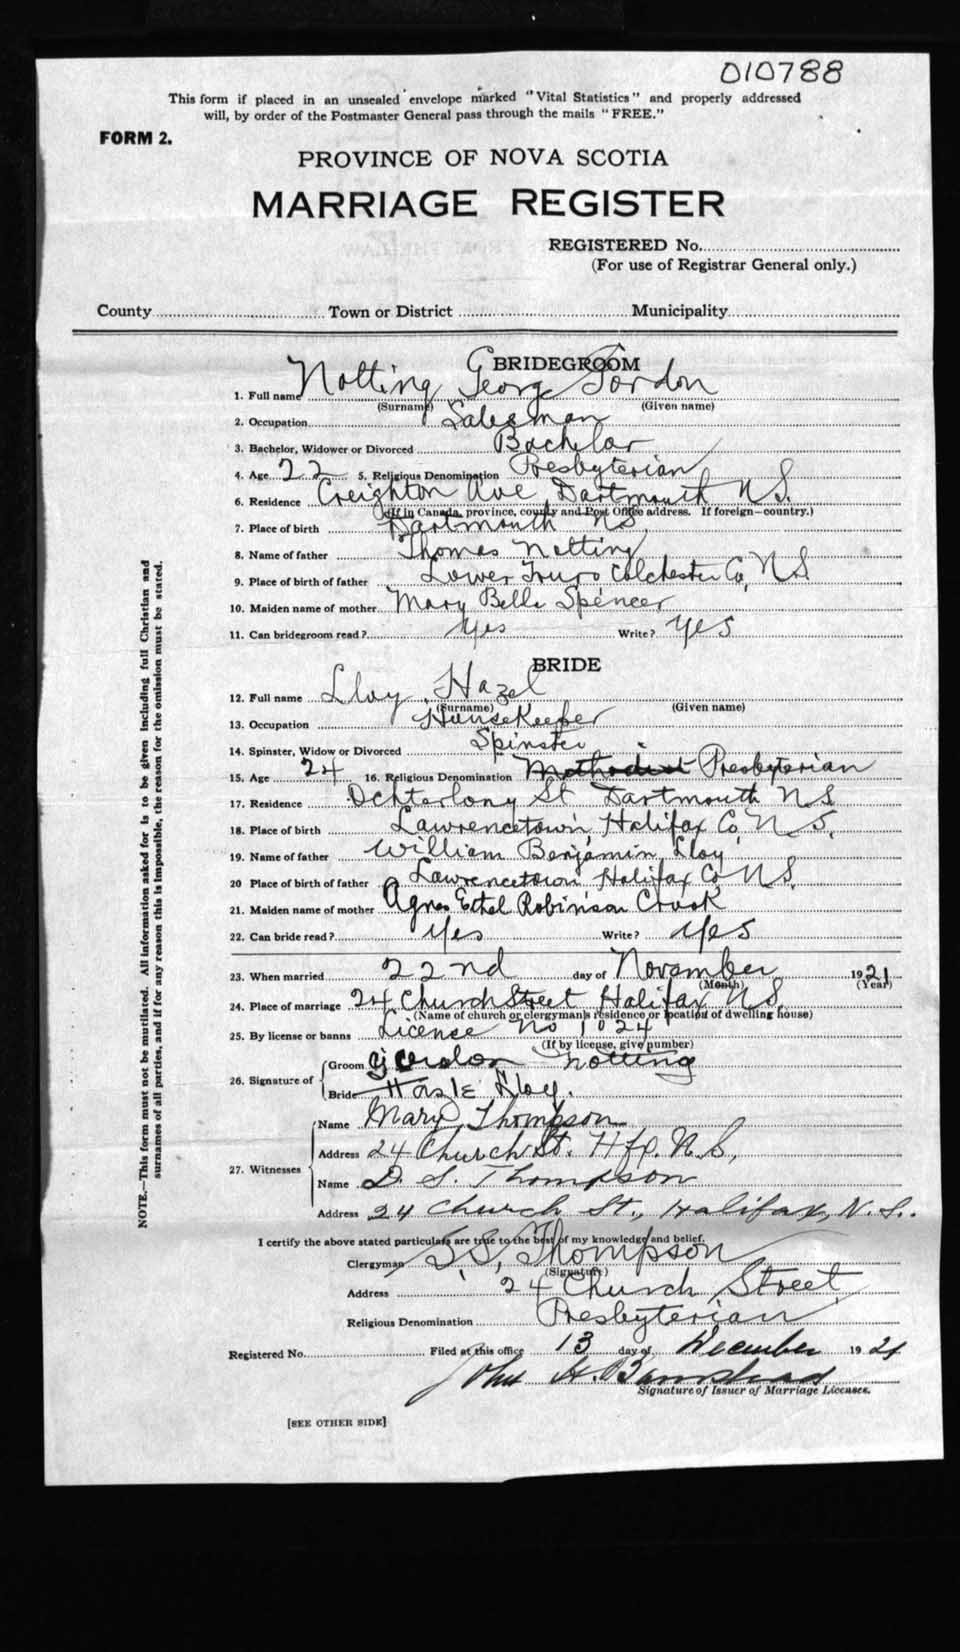 010788
This form if placed in an unsealed envelope marked "Vital Statistics" and properly addressed
will, by order of the Postmaster General pass through the mails "FREE."
FORM 2.
PROVINCE OF NOVA SCOTIA
MARRIAGE REGISTER
REGISTERED No.
(For use of Registrar General only.)
County Town or District Municipality
BRIDEGROOM
1. Full name Notting George Gordon
(Surname) (Given name)
2. Occupation Salesman
3. Bachelor, Widower or Divorced Bachelor
4. Age 22 5. Religious Denomination Presbyterian
6. Residence Creighton Ave Dartmouth N.S.
(If in Canada, province, county and Post Office address. If foreign—country.)
7. Place of birth Dartmouth N.S.
8. Name of father Thomas Notting
9. Place of birth of father Lower Truro Colchester Co, N.S.
10. Maiden name of mother Mary Belle Spencer
11. Can bridegroom read? Yes Write? Yes
BRIDE
12. Full name Lloy Hazel
(Surname) (Given name)
13. Occupation HouseKeeper
14. Spinster, Widow or Divorced Spinster
15. Age 24 16. Religious Denomination Methodist Presbyterian
17. Residence Ochterlony St Dartmouth N.S.
18. Place of birth Lawrencetown, Halifax Co, N.S.
19. Name of father William Benjamin Lloy
20 Place of birth of father Lawrencetown Halifax Co, N.S.
21. Maiden name of mother Agnes Ethel Robinson Crook
22. Can bride read? Yes Write? Yes
23. When married 22nd day of November 1921
(Month) (Year)
24. Place of marriage 24 Church Street Halifax N.S.
(Name of church or clergyman's residence or location of dwelling house)
25. By license or banns License No 1024
(If by license, give number)
26. Signature of
Groom Gordon Notting
Bride Hazle Lloy.
27. Witnesses
Name Mary Thompson
Address 24 Church St. Hfx. N.S.
Name D. S. Thompson
Address 24 Church St., Halifax, N.S.
I certify the above stated particulars are true to the best of my knowledge and belief.
Clergyman Thompson
(Signature)
Address 24 Church Street
Religious Denomination Presbyterian
Registered No. Filed at this office 13 day of December 1921
John H.
Signature of Issuer of Marriage Licenses.
[SEE OTHER SIDE]
NOTE.—This form must not be mutilated. All information asked for is to be given including full Christian and
surnames of all parties, and if for any reason this is impossible, the reason for the omission must be stated.